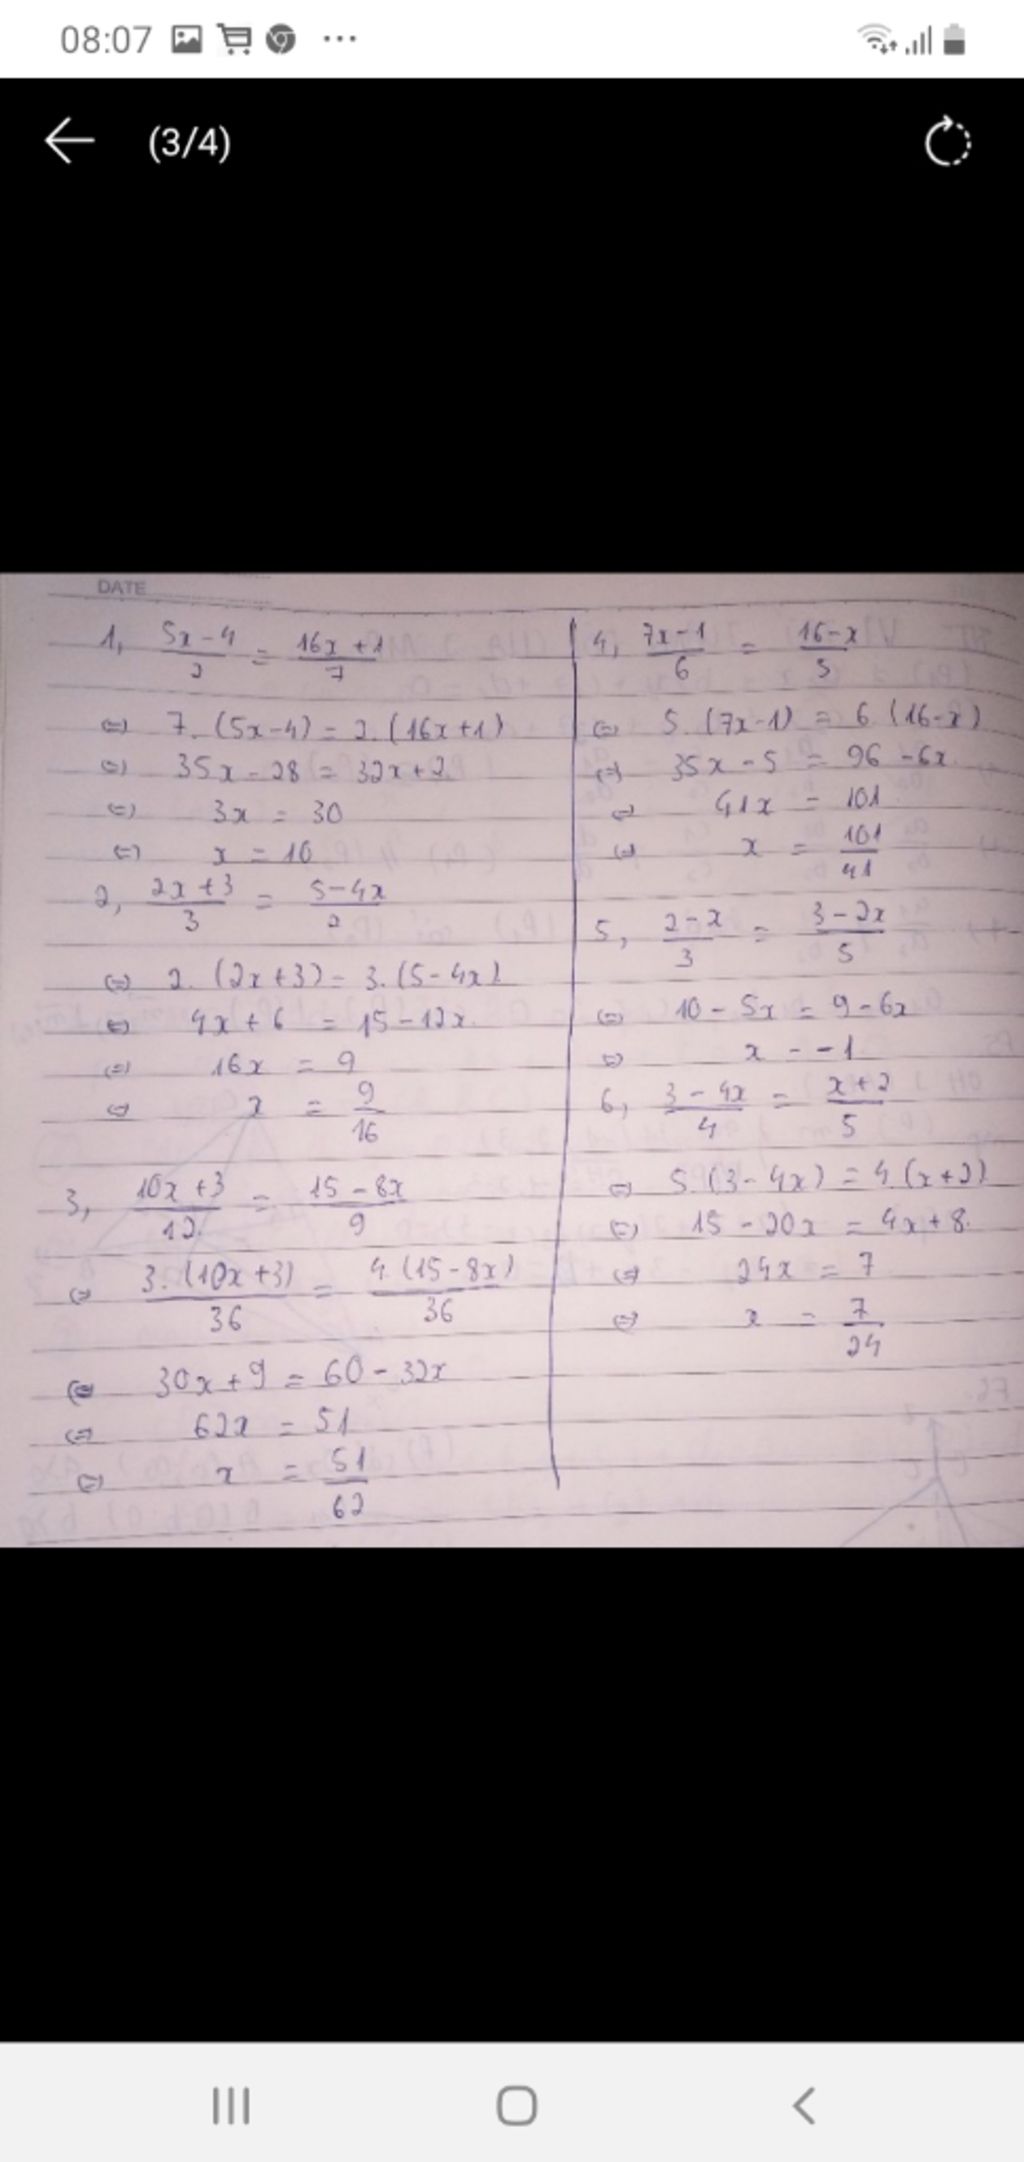 08:07
(3/4)
DATE
1, (5x-4)/2 = (16x+1)/7
⇔ 7.(5x-4) = 2.(16x+1)
⇔ 35x-28 = 32x+2
⇔ 3x = 30
⇔ x = 10
2, (2x+3)/3 = (5-4x)/2
⇔ 2.(2x+3) = 3.(5-4x)
⇔ 4x+6 = 15-12x
⇔ 16x = 9
⇔ x = 9/16
3, (10x+3)/12 = (15-8x)/9
⇔ 3.(10x+3)/36 = 4.(15-8x)/36
⇔ 30x+9 = 60-32x
⇔ 62x = 51
⇔ x = 51/62
4, (7x-1)/6 = (16-x)/5
⇔ 5.(7x-1) = 6.(16-x)
⇔ 35x-5 = 96-6x
⇔ 41x = 101
⇔ x = 101/41
5, (2-x)/3 = (3-2x)/5
⇔ 10-5x = 9-6x
⇔ x = -1
6, (3-4x)/4 = (x+2)/5
⇔ 5.(3-4x) = 4.(x+2)
⇔ 15-20x = 4x+8
⇔ 24x = 7
⇔ x = 7/24